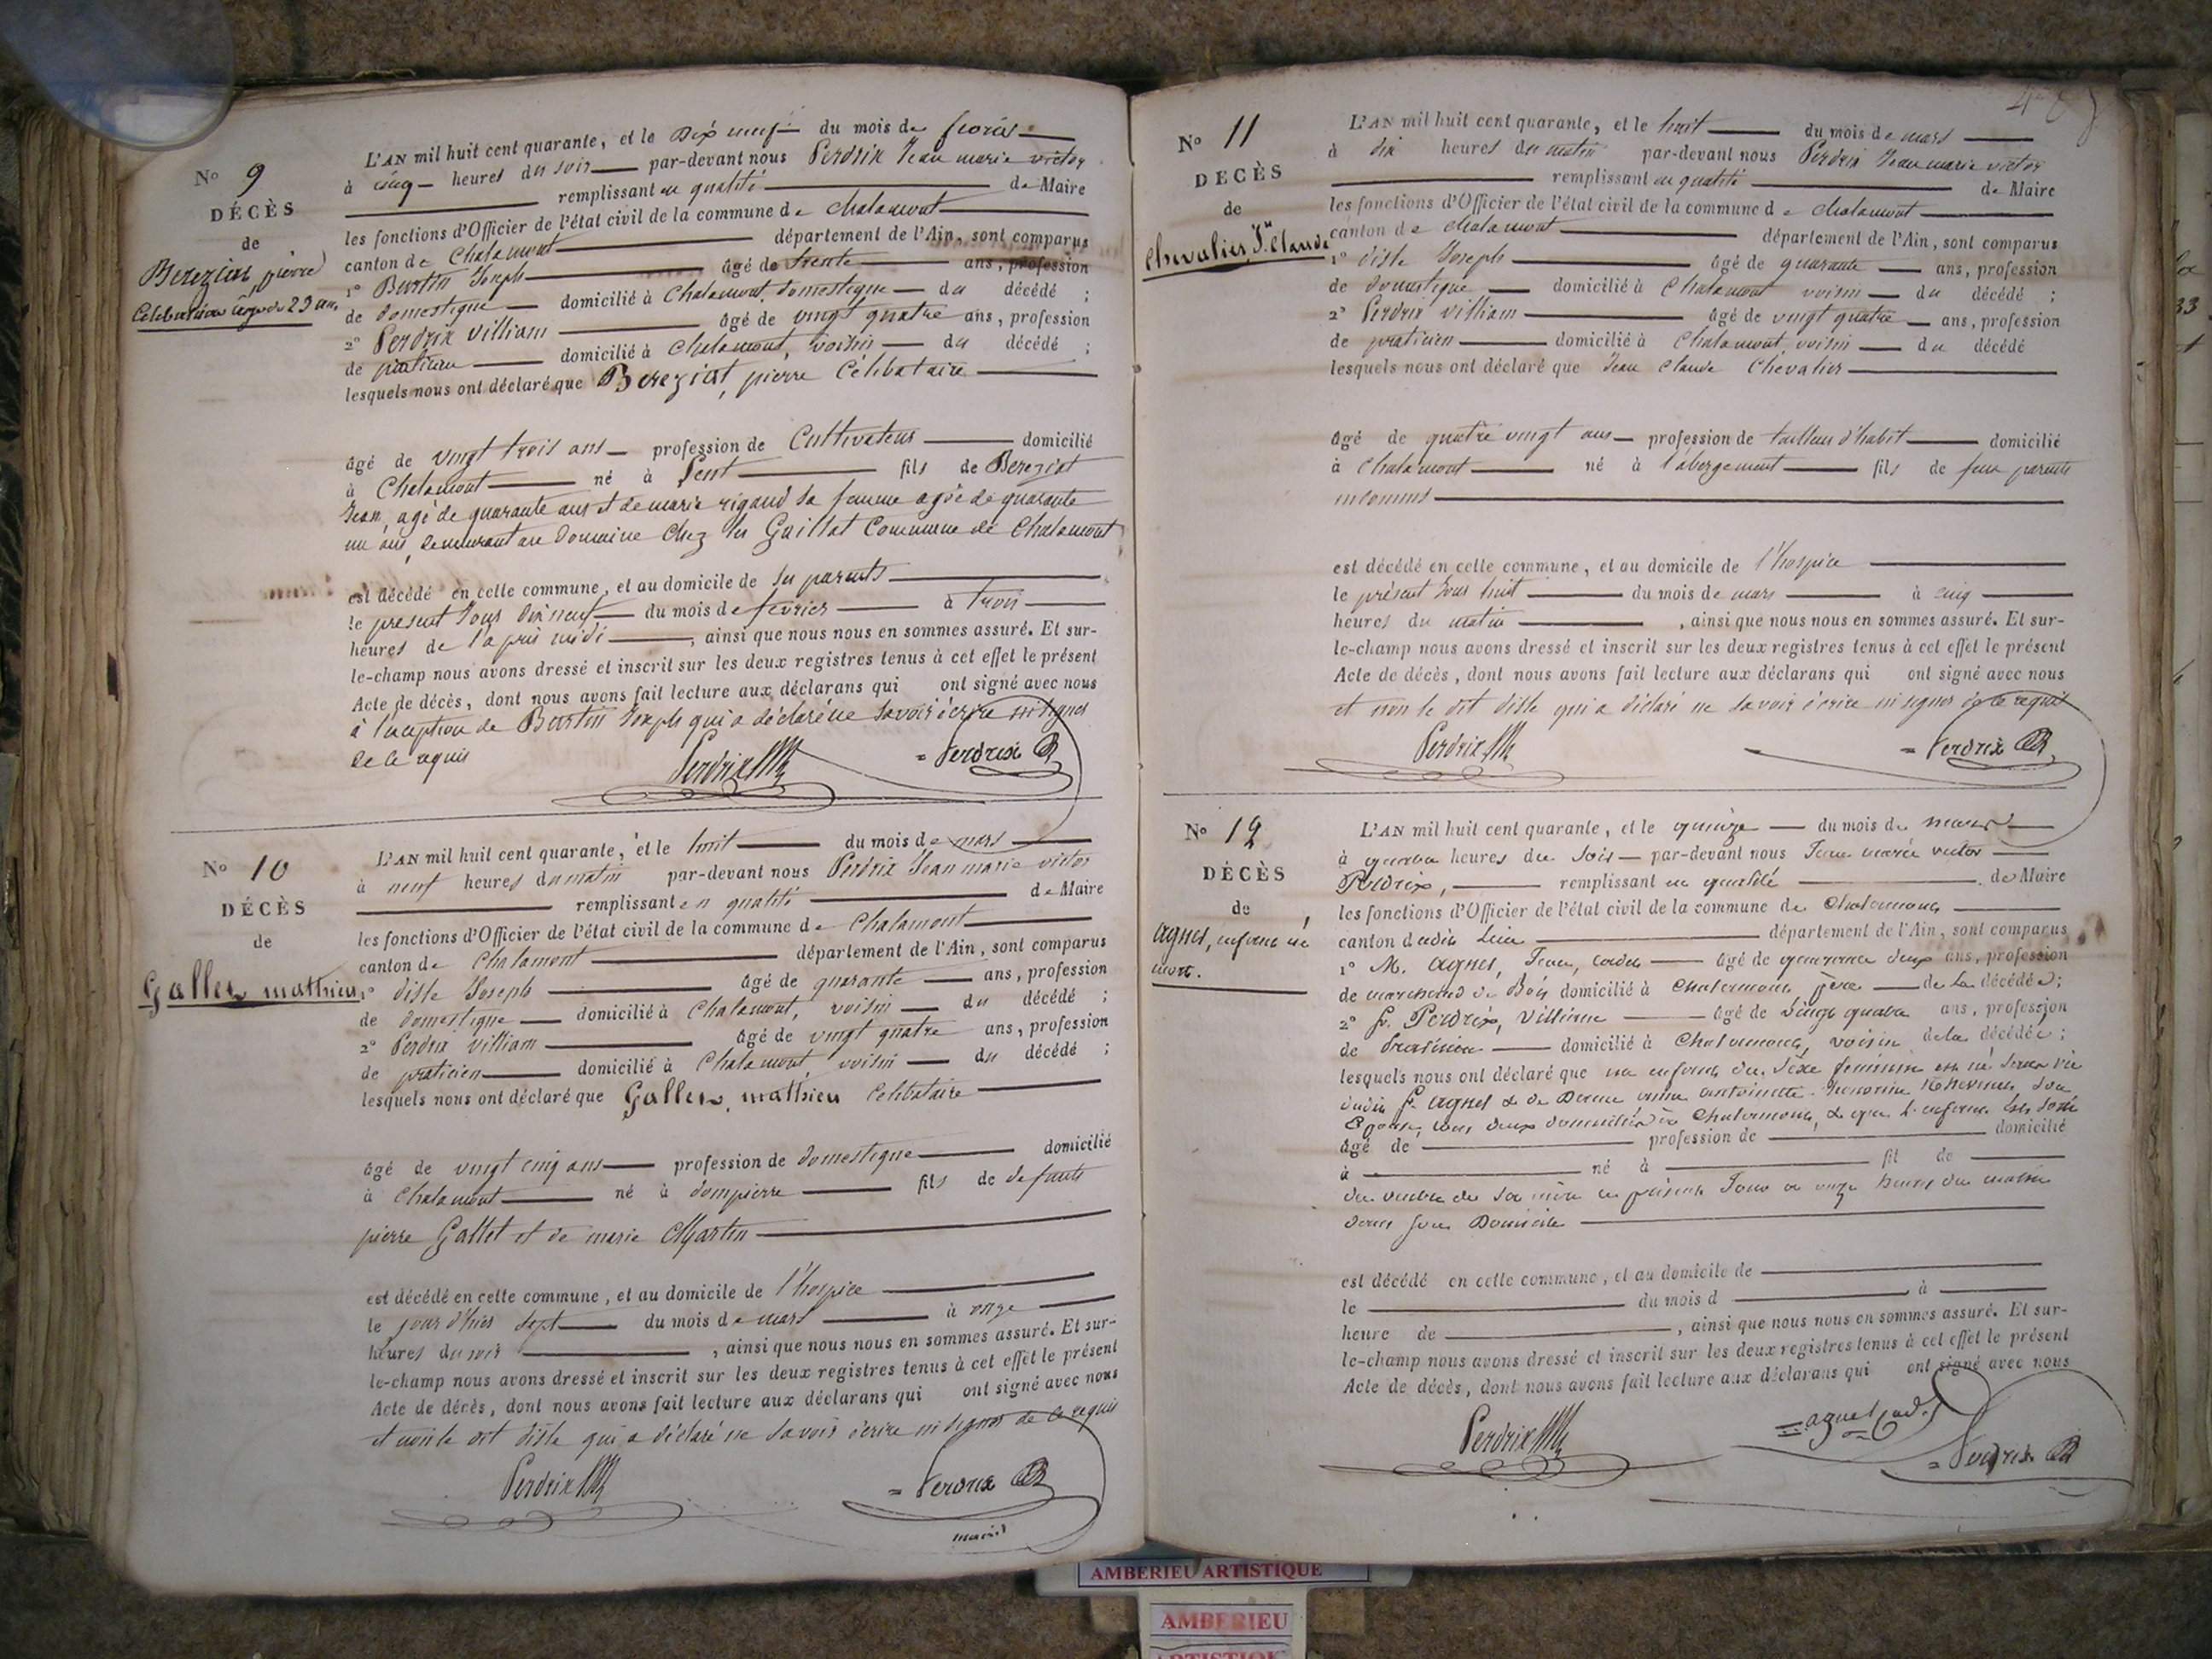 N° 9
DÉCÈS
de
Bereziat, pierre
Célibataire âgé de 23 ans
L'AN mil huit cent quarante, et le Dix neuf du mois de fevrier
à cinq heures du soir par-devant nous Perdrix Jean marie victor
remplissant en qualité de Maire
les fonctions d'Officier de l'état civil de la commune de Chalamont
canton de Chalamont département de l'Ain, sont comparus
1° Burtin Joseph âgé de trente ans, profession
de domestique domicilié à Chalamont, domestique du décédé ;
2° Perdrix villiam âgé de vingt quatre ans, profession
de praticien domicilié à Chalamont, voisin du décédé ;
lesquels nous ont déclaré que Bereziat, pierre Célibataire
âgé de vingt trois ans profession de Cultivateur domicilié
à Chalamont né à Lent fils de Bereziat
Jean, agé de quarante ans et de marie rigaud sa femme agée de quarante
un ans, demeurant au Domaine Chez les Guillot Commune de Chalamont
est décédé en cette commune, et au domicile de ses parents
le present Jour Dix neuf du mois de fevrier à trois
heures de l'apris midi, ainsi que nous nous en sommes assuré. Et sur-
le-champ nous avons dressé et inscrit sur les deux registres tenus à cet effet le présent
Acte de décès, dont nous avons fait lecture aux déclarans qui ont signé avec nous
à l'exeption de Burtin Joseph qui a déclaré ne savoir écrire ni signer
de ce requis
Perdrix Perdrix
N° 10
DÉCÈS
de
Gallet, mathieu
L'AN mil huit cent quarante, et le huit du mois de mars
à neuf heures du matin par-devant nous Perdrix Jean marie victor
remplissant en qualité de Maire
les fonctions d'Officier de l'état civil de la commune de Chalamont
canton de Chalamont département de l'Ain, sont comparus
1° diste Joseph âgé de quarante ans, profession
de domestique domicilié à Chalamont, voisin du décédé ;
2° Perdrix villiam âgé de vingt quatre ans, profession
de praticien domicilié à Chalamont, voisin du décédé ;
lesquels nous ont déclaré que Gallet, mathieu Celibataire
âgé de vingt cinq ans profession de domestique domicilié
à Chalamont né à dompierre fils de defunts
pierre Gallet et de marie Martin
est décédé en cette commune, et au domicile de l'hospice
le jour d'hier sept du mois de mars à onze
heures du soir, ainsi que nous nous en sommes assuré. Et sur-
le-champ nous avons dressé et inscrit sur les deux registres tenus à cet effet le présent
Acte de décès, dont nous avons fait lecture aux déclarans qui ont signé avec nous
et non le dit diste qui a déclaré ne savoir écrire ni signer de ce requis
Perdrix Perdrix
N° 11
DÉCÈS
de
Chevalier, Jn Claude
L'AN mil huit cent quarante, et le huit du mois de mars
à dix heures du matin par-devant nous Perdrix Jean marie victor
remplissant en qualité de Maire
les fonctions d'Officier de l'état civil de la commune de Chalamont
canton de Chalamont département de l'Ain, sont comparus
1° diste Joseph âgé de quarante ans, profession
de domestique domicilié à Chalamont voisin du décédé ;
2° Perdrix villiam âgé de vingt quatre ans, profession
de praticien domicilié à Chalamont, voisin du décédé
lesquels nous ont déclaré que Jean Claude Chevalier
âgé de quatre vingt ans profession de tailleur d'habit domicilié
à Chalamont né à l'abergement fils de feux parents
inconnus
est décédé en cette commune, et au domicile de l'hospice
le présent Jour huit du mois de mars à cinq
heures du matin, ainsi que nous nous en sommes assuré. Et sur-
le-champ nous avons dressé et inscrit sur les deux registres tenus à cet effet le présent
Acte de décès, dont nous avons fait lecture aux déclarans qui ont signé avec nous
et non le dit diste qui a déclaré ne savoir écrire ni signer de ce requis
Perdrix Perdrix
N° 12
DÉCÈS
de
agnel, enfant né
mort.
L'AN mil huit cent quarante, et le quinze du mois de mars
à quatre heures du soir par-devant nous Jean marie victor
Perdrix, remplissant en qualité de Maire
les fonctions d'Officier de l'état civil de la commune de Chalamont
canton dudit lieu département de l'Ain, sont comparus
1° M. agnel, Jean, cadet âgé de quarante deux ans, profession
de marchand de Bois domicilié à Chalamont père de la décédée ;
2° Sr. Perdrix, villiam âgé de vingt quatre ans, profession
de Praticien domicilié à Chalamont, voisin de la décédée ;
lesquels nous ont déclaré que un enfant du sexe féminin est né sans vie
dudit Sr. agnel & de Dame anne antoinette son
Epouse, tous deux domiciliés à Chalamont, & que l'enfant est sorti
âgé de profession de domicilié
à né à fil de
du ventre de sa mère ce présent Jour à onze heures du matin
dans son Domicile
est décédé en cette commune, et au domicile de
le du mois d à
heure de, ainsi que nous nous en sommes assuré. Et sur-
le-champ nous avons dressé et inscrit sur les deux registres tenus à cet effet le présent
Acte de décès, dont nous avons fait lecture aux déclarans qui ont signé avec nous
Perdrix agnel cad. Perdrix
AMBERIEU ARTISTIQUE
AMBERIEU
ARTISTIQUE